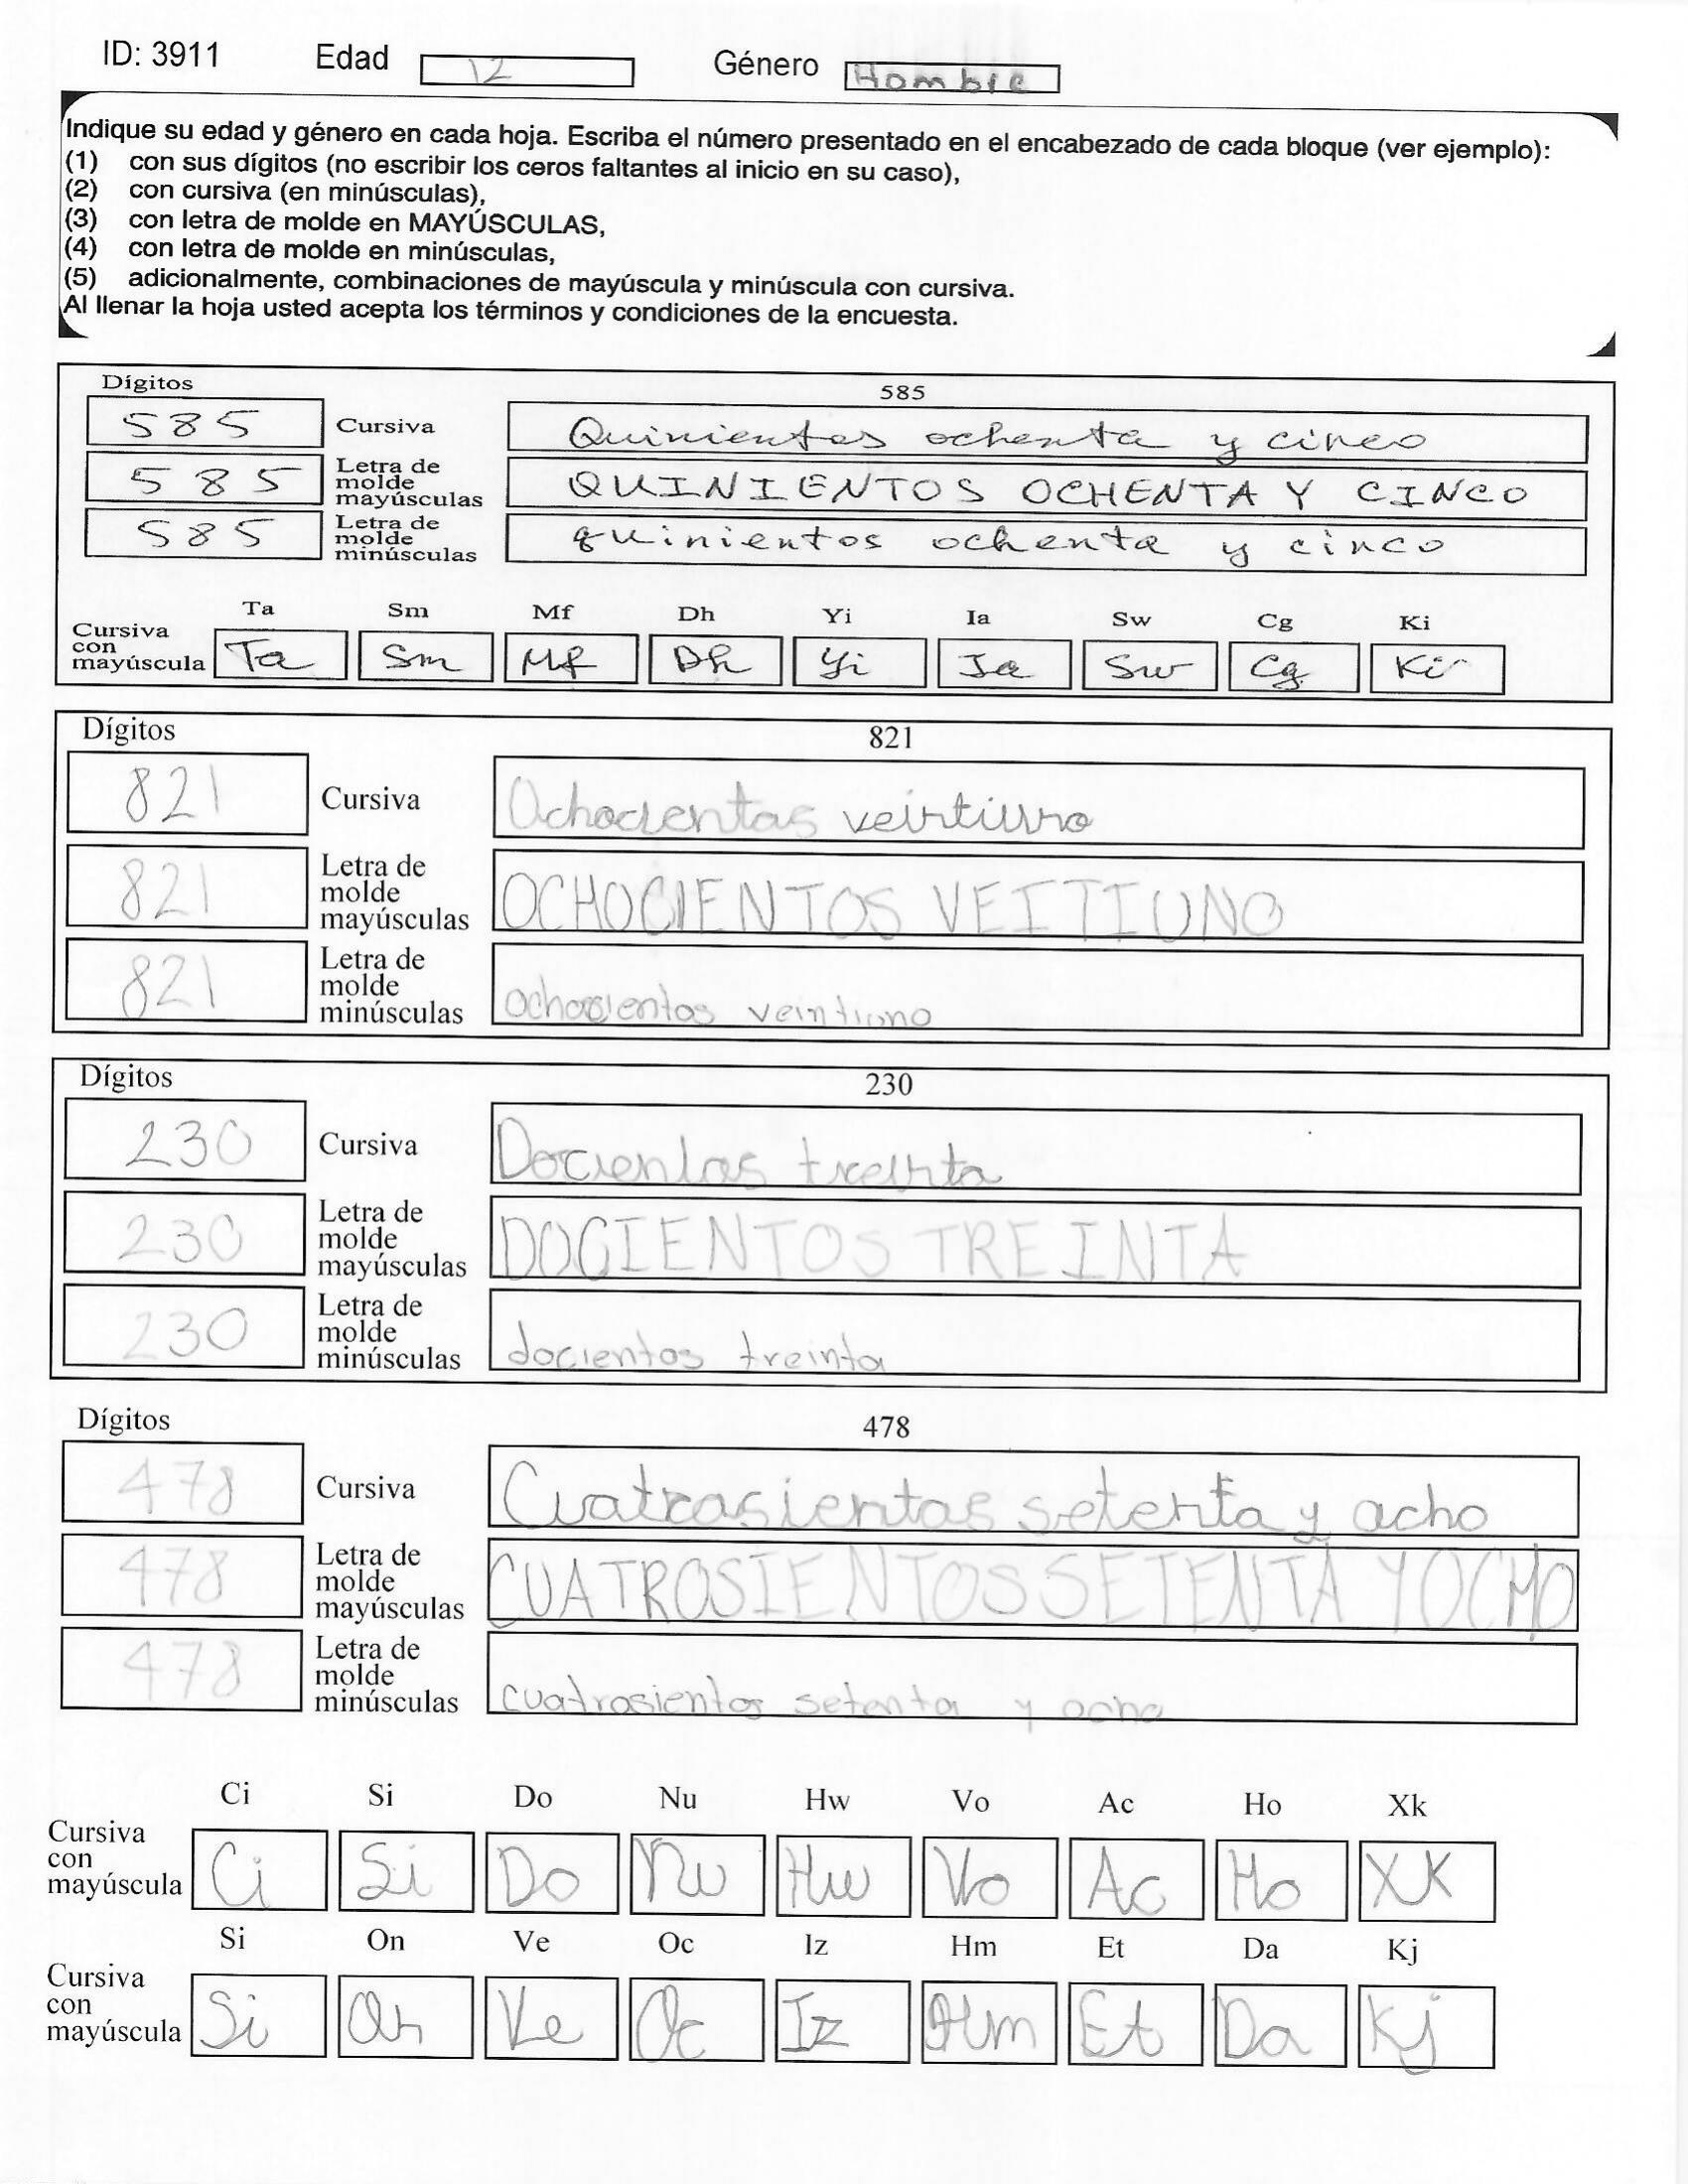 ID: 3911 Edad 12 Género Hombre
Indique su edad y género en cada hoja. Escriba el número presentado en el encabezado de cada bloque (ver ejemplo):
(1) con sus dígitos (no escribir los ceros faltantes al inicio en su caso),
(2) con cursiva (en minúsculas),
(3) con letra de molde en MAYÚSCULAS,
(4) con letra de molde en minúsculas,
(5) adicionalmente, combinaciones de mayúscula y minúscula con cursiva.
Al llenar la hoja usted acepta los términos y condiciones de la encuesta.
Dígitos 585
585 Cursiva Quinientos ochenta y cinco
585 Letra de molde mayúsculas QUINIENTOS OCHENTA Y CINCO
585 Letra de molde minúsculas quinientos ochenta y cinco
Ta Sm Mf Dh Yi Ia Sw Cg Ki
Cursiva con mayúscula Ta Sm Mf Dh Yi Ia Sw Cg Ki
Dígitos 821
821 Cursiva Ochocientos veintiuno
821 Letra de molde mayúsculas OCHOCIENTOS VEITIUNO
821 Letra de molde minúsculas ochocientos veintiuno
Dígitos 230
230 Cursiva Docientos treinta
230 Letra de molde mayúsculas DOCIENTOS TREINTA
230 Letra de molde minúsculas docientos treinta
Dígitos 478
478 Cursiva Cuatrosientos setenta y ocho
478 Letra de molde mayúsculas CUATROSIENTOS SETENTA Y OCHO
478 Letra de molde minúsculas cuatrosientos setenta y ocho
Ci Si Do Nu Hw Vo Ac Ho Xk
Cursiva con mayúscula Ci Si Do Nu Hw Vo Ac Ho XK
Si On Ve Oc Iz Hm Et Da Kj
Cursiva con mayúscula Si On Ve Oc Iz Hm Et Da Kj